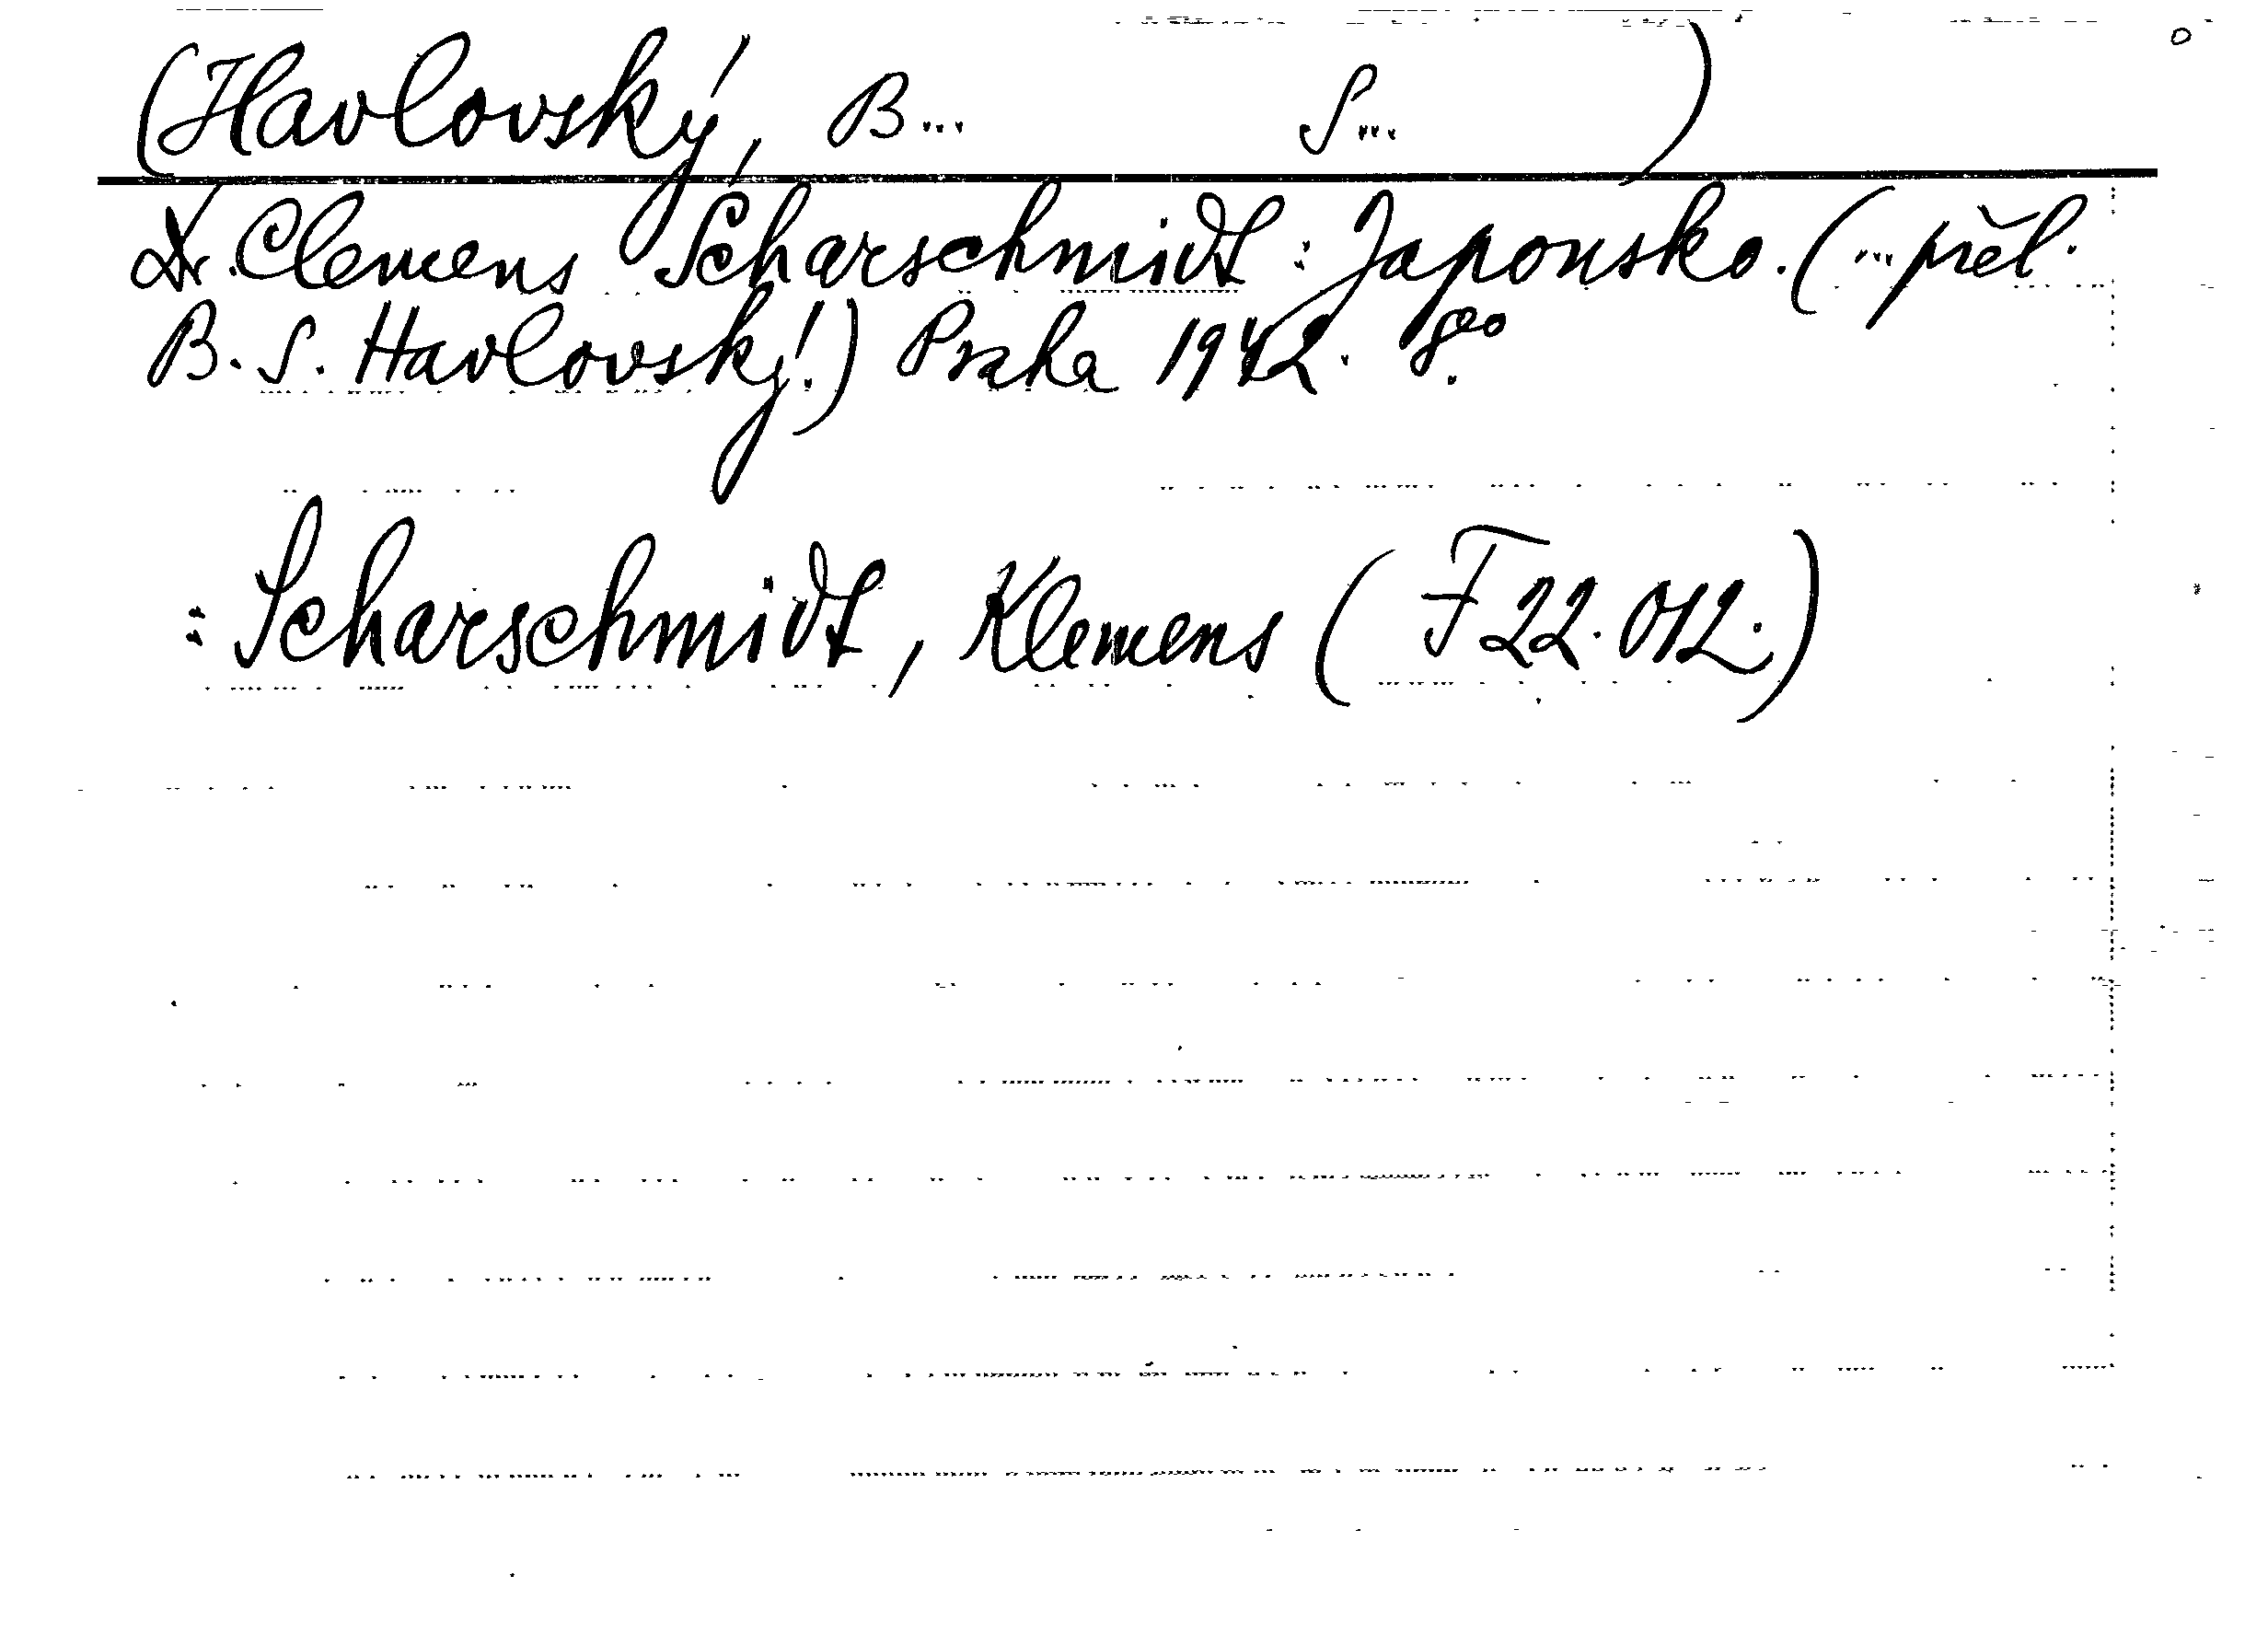 (Havlovský, B... S...)
Dr. Clemens Scharschmidt: Japonsko. (...přel.
B. S. Havlovský.) Praha 1942. 8°.
: Scharschmidt, Klemens (F 22.012.)